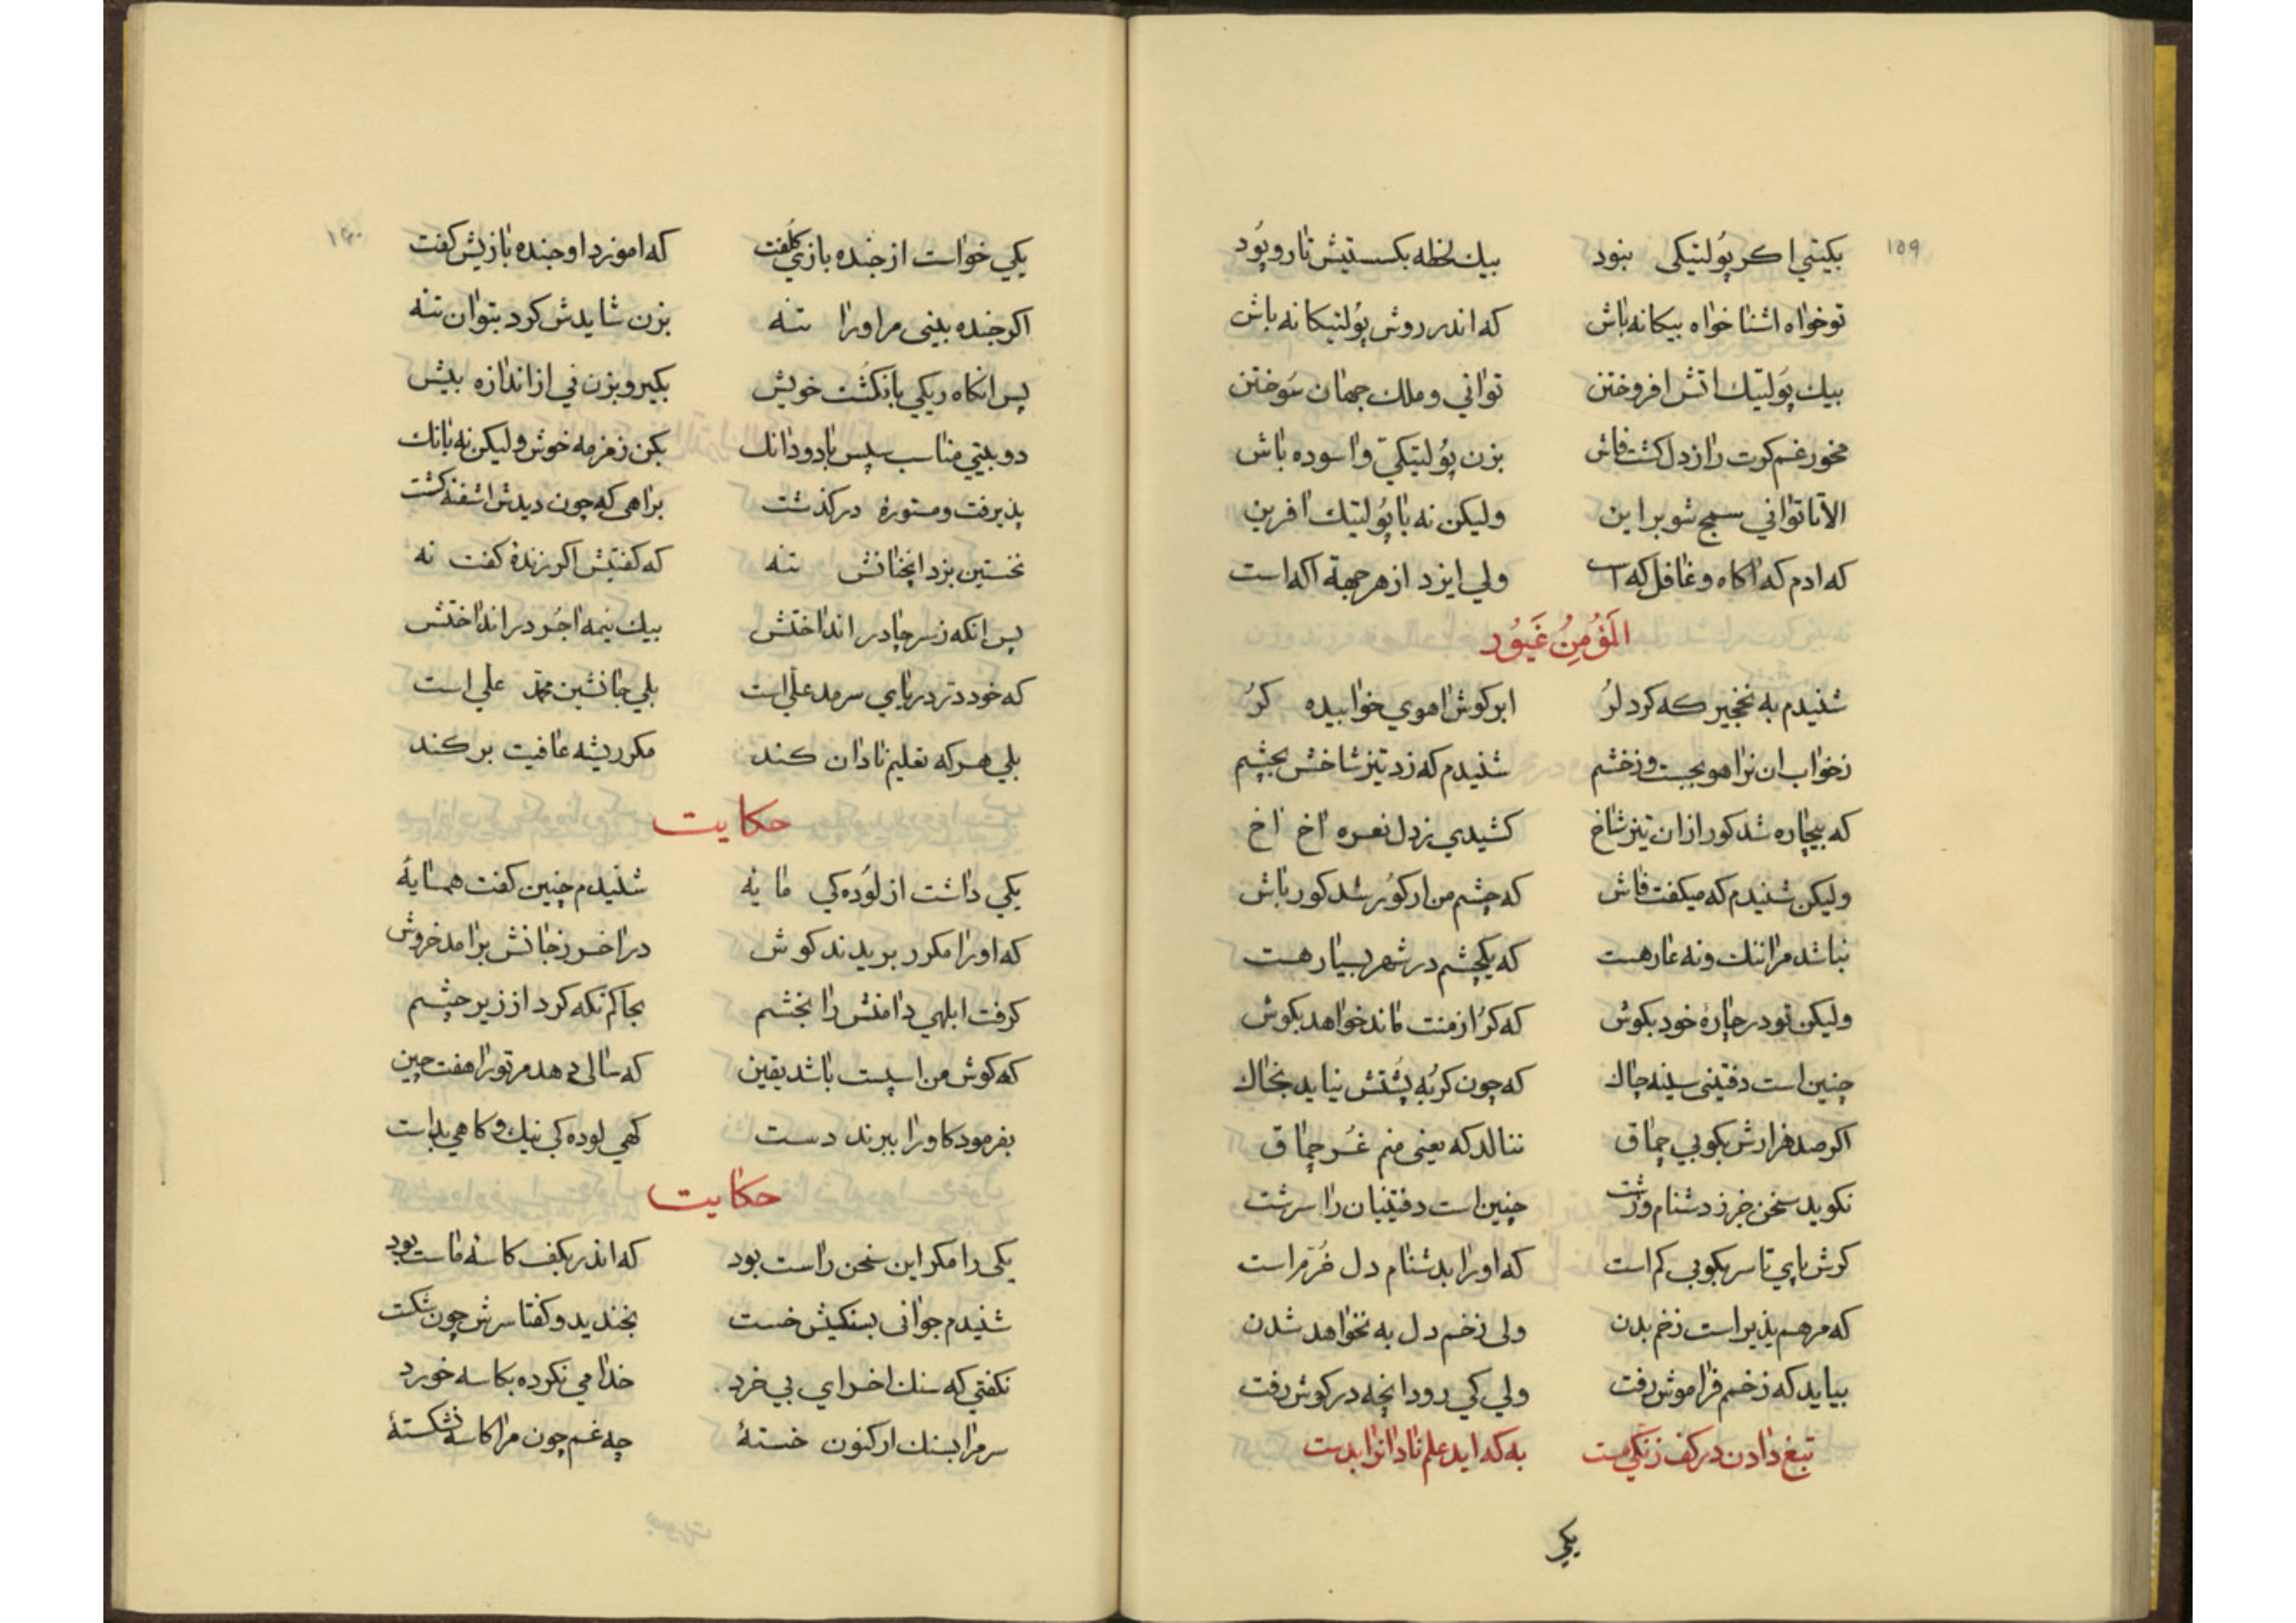 ۱۵۹
بکیتی اکر پُولتیکی نبود بیك لحظه بکسستیش تار و پُود
تو خواه اشنا خواه بیکانه باش که اندر روش پُولتیکانه باش
بیك پَولتیك اتش افروختن توانی و ملك جهان سَوختن
مخور غم کرت راز دل کشت فاش بزن پُولتیکیّ و اسوده باش
الا تا توانی سمج شو بر این ولیکن نه با پُولتیك افرین
که ادم که اکاه و غافل که است ولی ایزد از هر جهة اکه است
اَلمُؤمِنُ غَیُور
شنیدم به نخجیر که کرد لُر ابر کوش اهوی خوابیده کرُ
زخواب ان نر اهو بجست و زخشم شنیدم که زد تیز شاخش بچشم
که بیچاره شد کور از ان تیز شاخ کشیدی ز دل نعره اخ اخ
ولیکن شنیدم که میکفت فاش که چشم من ار کوُر شد کور باش
نباشد مرا ننك و نه عار هست که یکچشم در شهر بسیار هست
ولیکن تو در چارهٔ خود بکوش که کرُ از منت ماند خواهد بکوش
چنین است دفتینی سینه چاك که چون کربُه پُشتش نیاید بخاك
اکر صد هزارش بکوبی چماق ننالد که یعنی منم غُر چماق
نکوید سخن جز ز دشنام و زشت چنین است دفتینیان را سرشت
کرش پای تا سر بکوبی کم است که اورا بدشنام دل خُرّم است
که مرهم پذیر است زخم بدن ولی زخم دل به نخواهد شدن
بیاید که زخم فراموش رفت ولی کی رود انچه در کوش رفت
تیغ دادن در کف زنکی مست به که اید علم نادانرا بدست
یکی
۱۶۰
یکی خواست از جنده بازی کلُفت که اموزد او جنده بازیش کفت
اکر جنده بینی مر اورا تنه بزن شایدش کرد بتوان تنه
پس انکاه ریکی بانکشُت خویش بکیر و بزن نی از اندازه بیش
دو بیتی مناسب سپس با دو دانك بکن زمزمه خوش ولیکن نه بانك
پذیرفت و مستورهٔ در کذشت براهی که چون دیدش اشفته کشت
نخستین بزد انچنانش تنه که کفتیش اکر زندهٔ کفت نه
پس انکه ز سر چادر انداختش بیك نیمه اجُر در انداختش
که خود در دریای سرمد علی است بلی جانشین محمّد علی است
بلی هر که تعلیم نادان کند مکر ریشه عافیت بر کند
حکایت
یکی داشت از لوُده کی مایه شنیدم چنین کفت همسایهٔ
که اورا مکرر بریدند کوش در اخر ز جانش برامد خروش
کرفت ابلهی دامنش را بخشم بجاکم نکه کرد از زیر چشم
که کوش من اسپست باشد یقین که سالی دهد مر تورا هفت چین
بفرمود کاورا ببرند دست کهی لوده کی نیك و کاهی بد است
حکایت
یکی را مکر این سخن راست بود که اندر بکف کاسهٔ ماست بود
شنیدم جوانی بسنکیش خست بخندید و کفتا سرش چون شکست
نکفتی که سنك اخر ای بی خرد خدا می نکرده بکاسه خورد
سر مرا بسنك ار کنون خستهٔ چه غم چون مرا کاسه نشکستهٔ